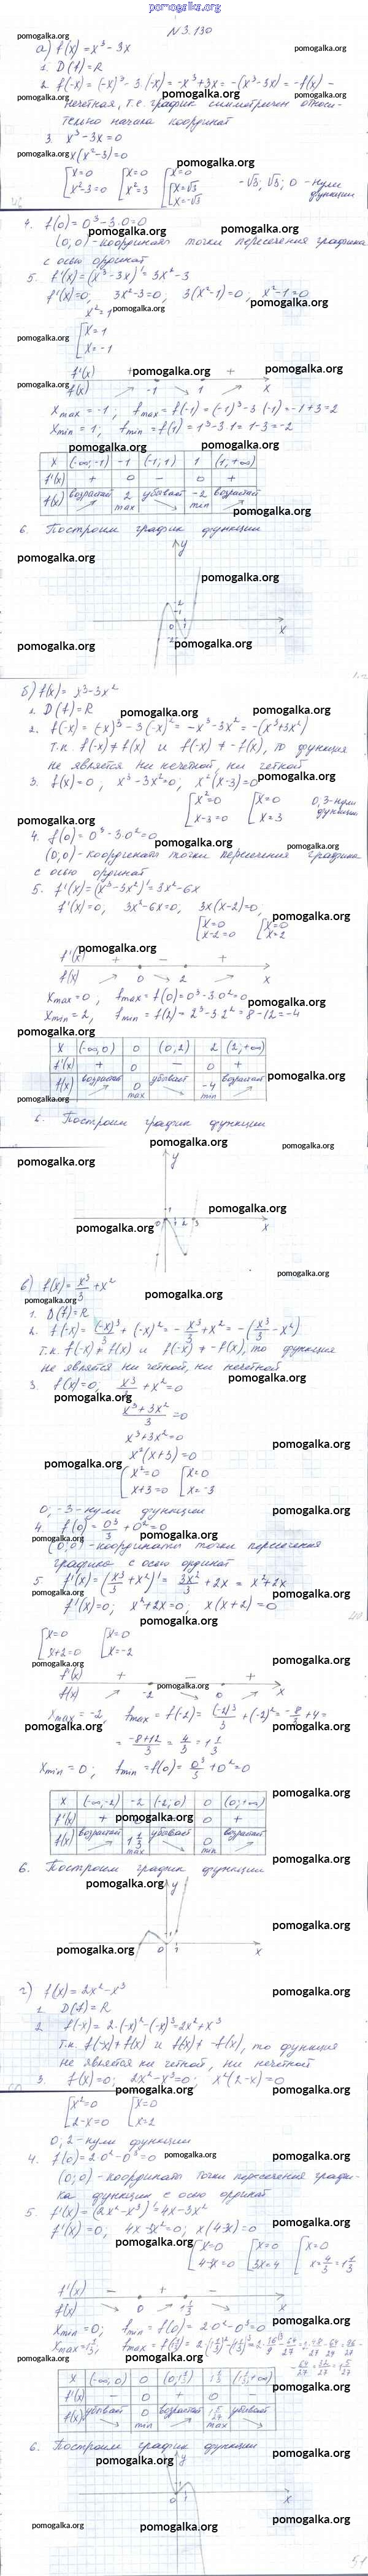 pomogalka.org
N 3.130
а) f(x) = x³ - 3x
1. D(f) = R
2. f(-x) = (-x)³ - 3·(-x) = -x³ + 3x = -(x³ - 3x) = -f(x) -
нечетная, т.е. график симметричен относи-
тельно начала координат
3. x³ - 3x = 0
x(x² - 3) = 0
[x = 0 [x = 0 [x = 0
x² - 3 = 0 x² = 3 [x = √3
x = -√3
-√3; √3; 0 - нули функции
4. f(0) = 0³ - 3·0 = 0
(0; 0) - координата точки пересечения графика
с осью ординат
5. f'(x) = (x³ - 3x)' = 3x² - 3
f'(x) = 0, 3x² - 3 = 0; 3(x² - 1) = 0; x² - 1 = 0
x² = 1
[x = 1
x = -1
f'(x) + - +
f(x) -1 1 x
x max = -1, f max = f(-1) = (-1)³ - 3·(-1) = -1 + 3 = 2
x min = 1, f min = f(1) = 1³ - 3·1 = 1 - 3 = -2
x (-∞; -1) -1 (-1; 1) 1 (1; +∞)
f'(x) + 0 - 0 +
f(x) возрастай 2 max убывает -2 min возрастай
6. Построим график функции
y
x
б) f(x) = x³ - 3x²
1. D(f) = R
2. f(-x) = (-x)³ - 3(-x)² = -x³ - 3x² = -(x³ + 3x²)
т.к. f(-x) ≠ f(x) и f(-x) ≠ -f(x), то функция
не является ни нечетной, ни четной
3. f(x) = 0, x³ - 3x² = 0; x²(x - 3) = 0
[x² = 0 [x = 0 0, 3 - нули функции
x - 3 = 0 x = 3
4. f(0) = 0³ - 3·0² = 0
(0; 0) - координата точки пересечения графика
с осью ординат
5. f'(x) = (x³ - 3x²)' = 3x² - 6x
f'(x) = 0, 3x² - 6x = 0; 3x(x - 2) = 0,
[x = 0 [x = 0
x - 2 = 0 x = 2
f'(x) + - +
f(x) 0 2 x
x max = 0, f max = f(0) = 0³ - 3·0² = 0
x min = 2, f min = f(2) = 2³ - 3·2² = 8 - 12 = -4
x (-∞; 0) 0 (0; 2) 2 (2; +∞)
f'(x) + 0 - 0 +
f(x) возрастай 0 max убывает -4 min возрастай
6. Построим график функции
y
x
в) f(x) = x³/3 + x²
1. D(f) = R
2. f(-x) = (-x)³/3 + (-x)² = -x³/3 + x² = -(x³/3 - x²)
т.к. f(-x) ≠ f(x) и f(-x) ≠ -f(x), то функция
не является ни четной, ни нечетной
3. f(x) = 0, x³/3 + x² = 0
(x³ + 3x²)/3 = 0
x³ + 3x² = 0
x²(x + 3) = 0
[x² = 0 [x = 0
x + 3 = 0 x = -3
0, -3 - нули функции
4. f(0) = 0³/3 + 0² = 0
(0; 0) - координата точки пересечения
графика с осью ординат
5. f'(x) = (x³/3 + x²)' = 3x²/3 + 2x = x² + 2x
f'(x) = 0; x² + 2x = 0, x(x + 2) = 0
[x = 0 [x = 0
x + 2 = 0 x = -2
f'(x) + - +
f(x) -2 0 x
x max = -2, f max = f(-2) = (-2)³/3 + (-2)² = -8/3 + 4 =
= (-8 + 12)/3 = 4/3 = 1 1/3
x min = 0; f min = f(0) = 0³/3 + 0² = 0
x (-∞; -2) -2 (-2; 0) 0 (0; +∞)
f'(x) + 0 +
f(x) возрастай 1 1/3 max убывает 0 min возрастай
6. Построим график функции
y
x
г) f(x) = 2x² - x³
1. D(f) = R
2. f(-x) = 2·(-x)² - (-x)³ = 2x² + x³
т.к. f(-x) ≠ f(x) и f(x) ≠ -f(x), то функция
не является ни четной, ни нечетной
3. f(x) = 0; 2x² - x³ = 0; x²(2 - x) = 0
[x² = 0 [x = 0
2 - x = 0 x = 2
0; 2 - нули функции
4. f(0) = 2·0² - 0³ = 0
(0; 0) - координата точки пересечения графи-
ка функции с осью ординат
5. f'(x) = (2x² - x³)' = 4x - 3x²
f'(x) = 0, 4x - 3x² = 0; x(4 - 3x) = 0
[x = 0 [x = 0 [x = 0
4 - 3x = 0 3x = 4 x = 4/3 = 1 1/3
f'(x) - + -
f(x) 0 1 1/3 x
x min = 0; f min = f(0) = 2·0² - 0³ = 0
x (-∞; 0) 0 (0; 1 1/3) 1 1/3 (1 1/3; +∞)
f'(x) - 0 + 0 -
f(x) убывает 0 min возрастай 1 5/27 max убывает
6. Построим график функции
y
x